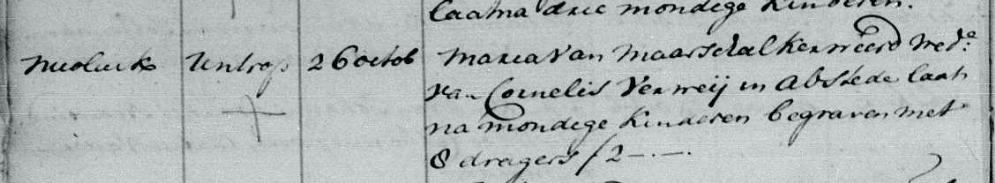 laatna drie mondege kinderen.
Nicolaik Untrop 26 octob Maria van Maarschalkerweerd Wede:
van Cornelis Verweij in Abstede laat
na mondege kinderen begraven met
8 dragers f 2-.-.